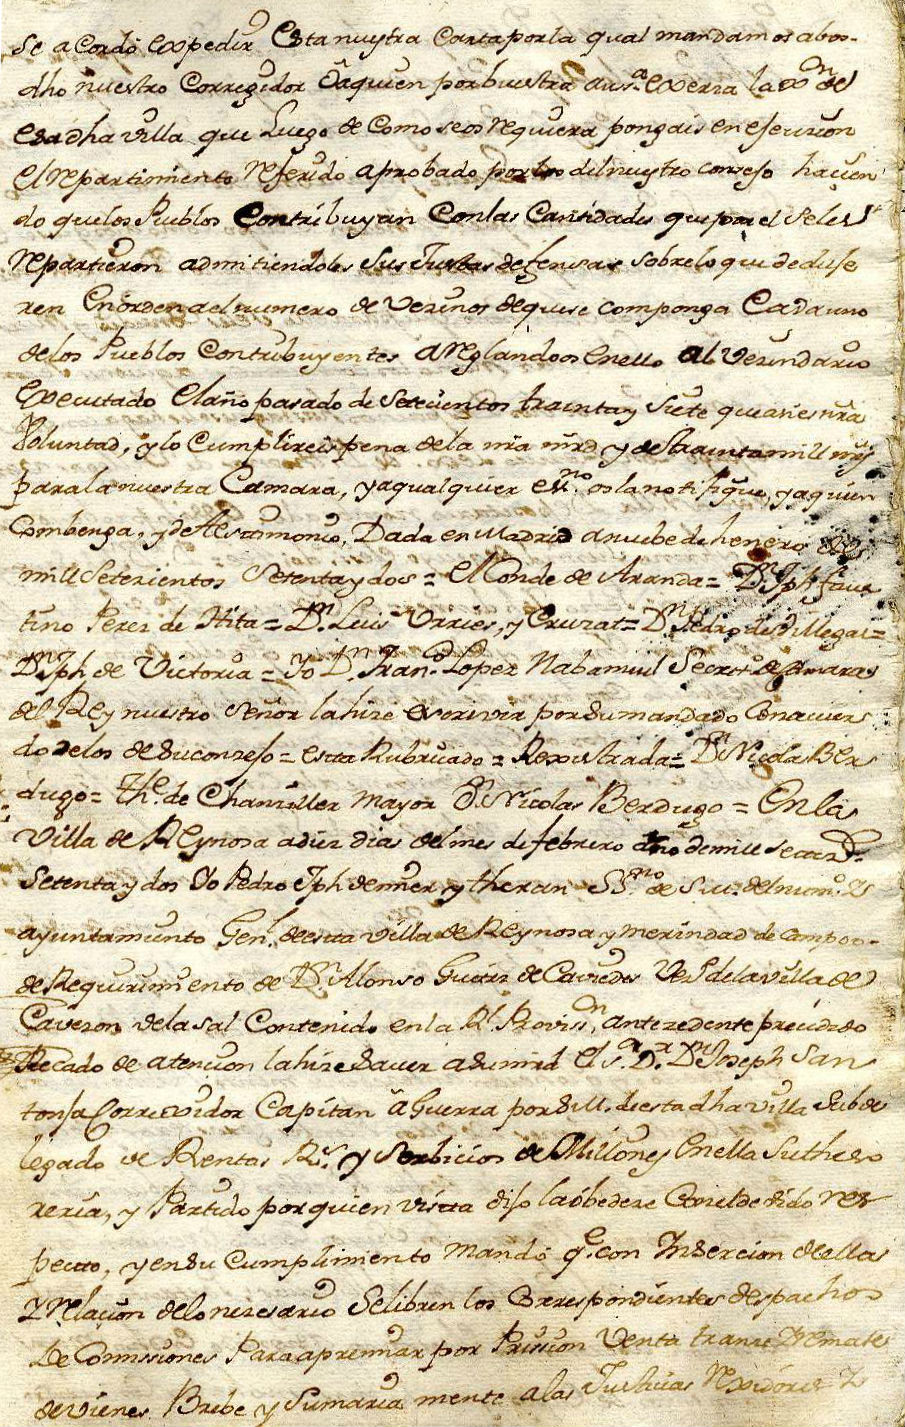 se acordó expedir Esta nuestra Carta por la qual mandamos a bos
dho nuestro Corregidor ô a quien por buestra aus.ª exerza la xon de
esa dha villa que Luego de como se os requiera pongais en esecuzion
el repartimiento referido aprobado por los del nuestro consejo haçien
do que los Pueblos Contribuyan Con las Cantidades que por el se les
repartieron admitiendoles sus Justas defensas sobre lo que deduse
ren En orden a el numero de vezinos de que se componga Cada uno
de los Pueblos Contribuyentes arreglandoos En ello al Vezindario
Executado el año pasado de setezientos trainta y siete que asi es nrâ
Voluntad, y lo Cumplireis pena de la nrâ mrd y de trainta mill mrs
para la nuestra Camara, y a qualquier esno os la notifique, y a quien
Combenga, y de ello testimonio, Dada en Madrid a nuebe de henero de
mill Setezientos Setenta y dos = el Conde de Aranda = Dn Jph faus
tino Perez de Hita = Dn Luis Vrries, y Cruzat = Dn Pedro de Villegas =
Dn Jph de Victoria = Yo Dn Fran.co Lopez Nabamuel Secret.º de Camara
del Rey nuestro señor la hize escrivir por su mandado Con acuer
do de los de su consejo = esta Rubricado = Rexistrada = Dn Nicolas Ber
dugo = The. de Chanziller mayor Dn Nicolas Berdugo = En la
villa de Reynosa a diez dias del mes de febrero año de mill setezs
setenta y dos Yo Pedro Jph de mier y theran SSno de su M. del num.º y
ayuntamiento Genl. de esta villa de Reynosa y merindad de campoo
de Requirimiento de Dn Alonso Gutirz de Caviedes Vzº de la villa de
Cavezon de la sal Contenido en la Rl. Provisn, antezedente prezidido
Recado de atenzion la hize saver a su mrd el sr. Dr. Dn Joseph San
tonja Corregidor Capitan â Guerra por S.M. de esta dha villa subde
legado de Rentas Rs. y Serbicios de Millones En ella su theso
reria, y Partido por quien vista dijo la óbedeze Con el debido res
pecto, y en su Cumplimiento mandó qe. con Insercion de ella
y relazion de lo nezesario se libren los Correspondientes despachos
de Comissiones Para apremiar por Prission Venta tranze Y Remate
de vienes Brebe y sumaria mente a las Justicias Rexidores y